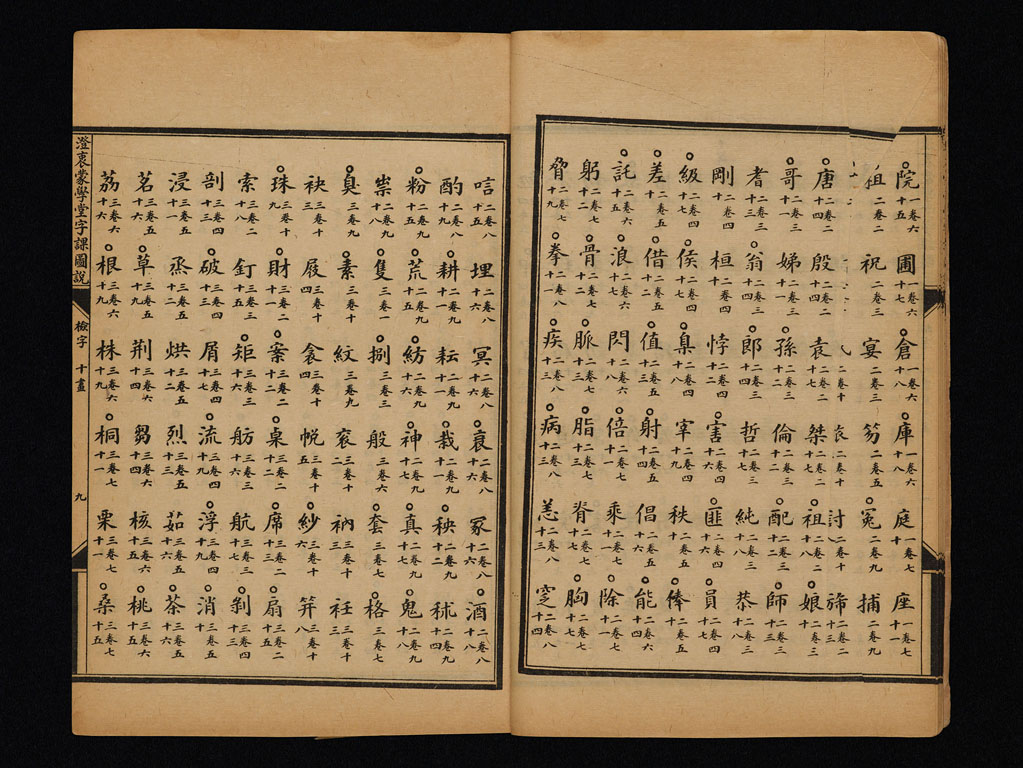 院 一卷六 十五 圃 一卷六 十七 倉 一卷六 十八 庫 一卷六 十八 庭 一卷七 十 座 一卷七 十一
祝 二卷三 宴 二卷三 笏 二卷五 冤 二卷九 捕 二卷九
唐 二卷二 十四 殷 二卷二 十四 袁 二卷二 十七 桀 二卷二 十七 祖 二卷三 娘 二卷三
哥 二卷三 十 娣 二卷三 十一 孫 二卷三 十二 倫 二卷三 十二 配 二卷三 十二 師 二卷三 十三
耆 二卷三 十三 翁 二卷三 十三 郎 二卷三 十四 哲 二卷三 十七 純 二卷三 十八 恭 二卷三 十八
剛 二卷四 桓 二卷四 悖 二卷四 十二 害 二卷四 十六 匪 二卷四 十六 員 二卷五
級 二卷五 十七 侯 二卷五 臬 二卷五 十八 宰 二卷五 十九 秩 二卷五 十五 俸 二卷五
差 二卷五 借 二卷六 值 二卷六 射 二卷五 倡 二卷五 十六 能 二卷六 十四
託 二卷六 十五 浪 二卷六 十七 閃 二卷六 十八 倍 二卷六 十一 乘 二卷六 十一 除 二卷六 十一
躬 二卷七 十一 骨 二卷七 十二 脈 二卷七 十三 脂 二卷七 十三 脊 二卷七 十五 胸 二卷七 十七
脅 二卷七 十九 拳 二卷八 十一 疾 二卷八 十三 病 二卷八 十三 恙 二卷八 十三 窆 二卷八 十四
唁 二卷八 十五 埋 二卷八 十六 冥 二卷八 十六 衰 二卷八 十六 冢 二卷八 十六 酒 二卷八 十八
酌 二卷八 十九 耕 二卷九 十一 耘 二卷九 十一 栽 二卷九 十一 秧 二卷九 十二 秫 二卷九 十四
粉 二卷九 十六 荒 二卷九 十九 紡 二卷九 神 二卷九 十七 真 二卷九 十七 鬼 二卷九 十八
祟 二卷九 十八 隻 三卷一 捌 三卷三 般 三卷六 套 三卷七 格 三卷七
臭 三卷九 素 三卷十 紋 三卷九 衮 三卷十 二 衲 三卷十 三 衽 三卷十 三
袂 三卷十 三 屐 三卷十 四 衾 三卷十 四 帨 三卷十 五 紗 三卷十 六 笄 三卷十 八
珠 三卷十 九 財 三卷二 十一 案 三卷二 十三 桌 三卷二 十三 席 三卷二 十四 扇 三卷二 十五
索 三卷二 十八 釘 三卷三 十五 矩 三卷三 十六 舫 三卷三 十六 航 三卷三 十七 剝 三卷四 十三
剖 三卷四 十三 破 三卷四 十三 屑 三卷四 十七 流 三卷四 十九 浮 三卷四 十九 消 三卷五 十
浸 三卷五 十一 烝 三卷五 十二 烘 三卷五 十二 烈 三卷五 十三 茹 三卷五 十六 茶 三卷五 十六
茗 三卷五 十六 草 三卷五 十九 荆 三卷六 十四 芻 三卷六 十四 核 三卷六 十五 桃 三卷六 十五
荔 三卷六 十六 根 三卷六 十九 株 三卷六 十九 桐 三卷七 十一 栗 三卷七 十一 桑 三卷七 十五
澄衷蒙學堂字課圖說 檢字 十畫 九